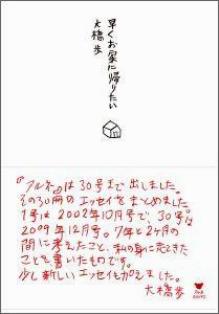 早くお家に帰りたい
大橋歩
『アルネ』は30号まで出しました。
その30冊のエッセイをまとめました。
1号は2002年10月号で、30号は
2009年12月号。7年と2ヶ月の
間に考えたこと、私の身に起きた
ことを書いたものです。
少し新しいエッセイも加えました。
大橋歩